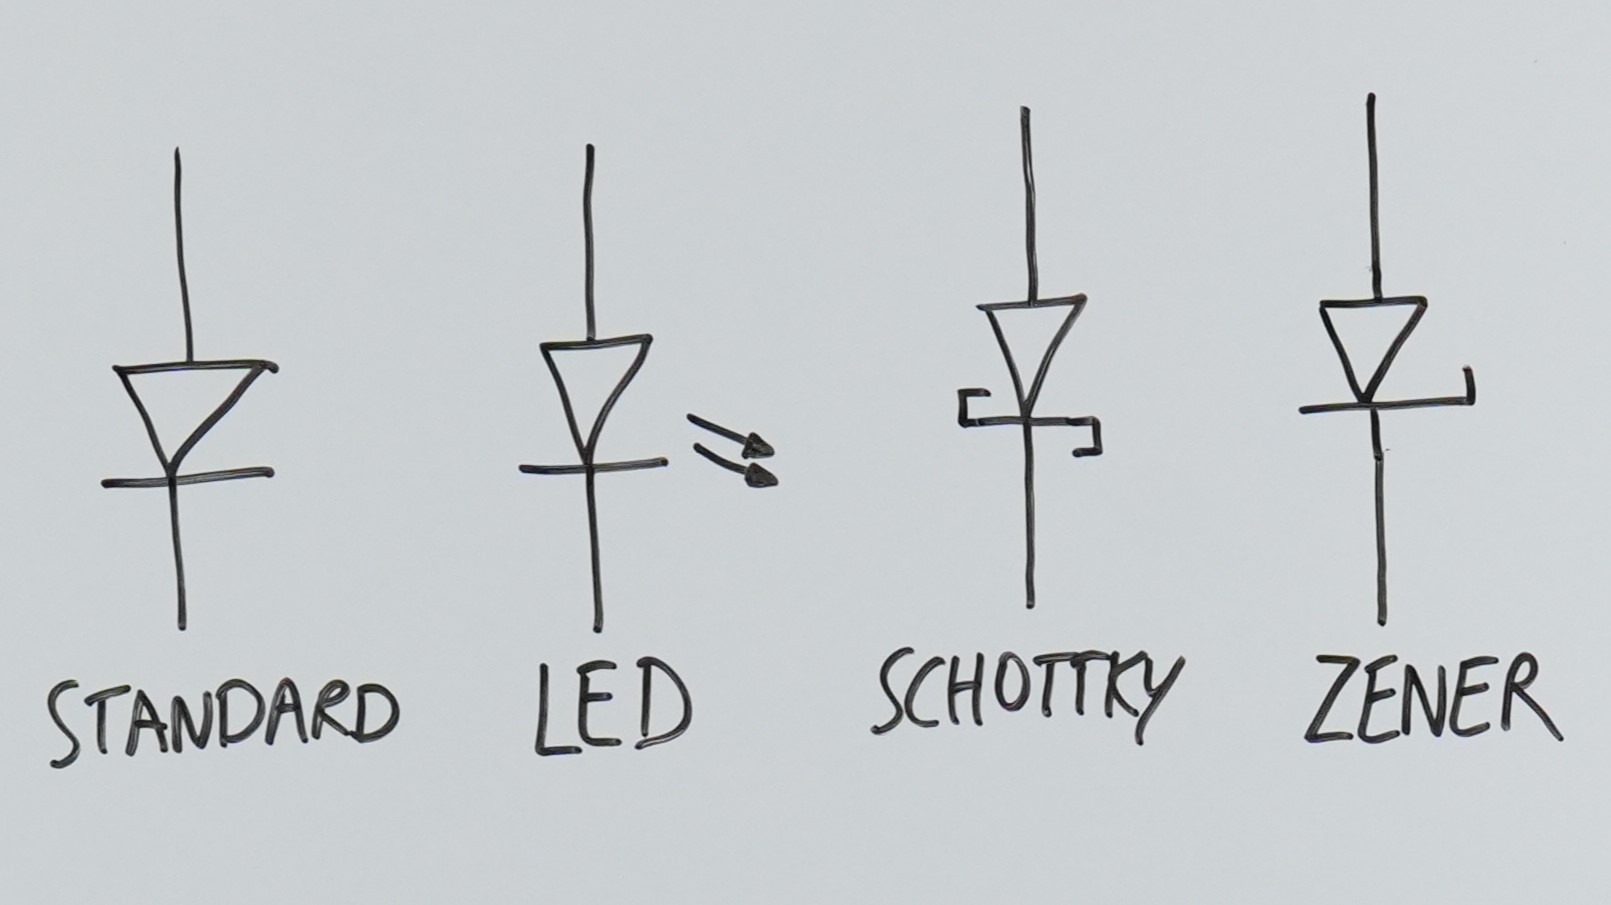 STANDARD LED SCHOTTKY ZENER